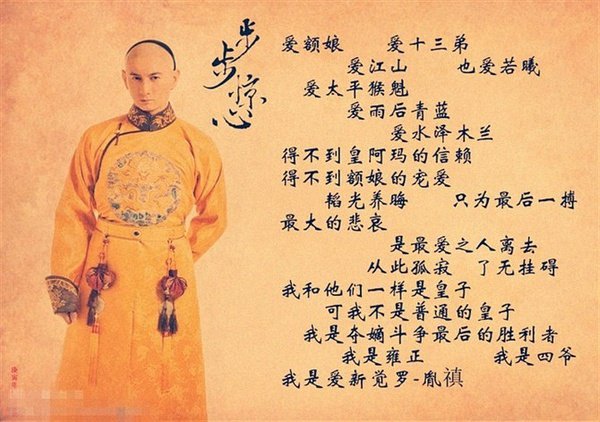 步步惊心
爱额娘 爱十三弟
爱江山 也爱若曦
爱太平猴魁
爱雨后青蓝
爱水泽木兰
得不到皇阿玛的信赖
得不到额娘的宠爱
韬光养晦 只为最后一搏
最大的悲哀
是最爱之人离去
从此孤寂 了无挂碍
我和他们一样是皇子
可我不是普通的皇子
我是夺嫡斗争最后的胜利者
我是雍正 我是四爷
我是爱新觉罗-胤禛